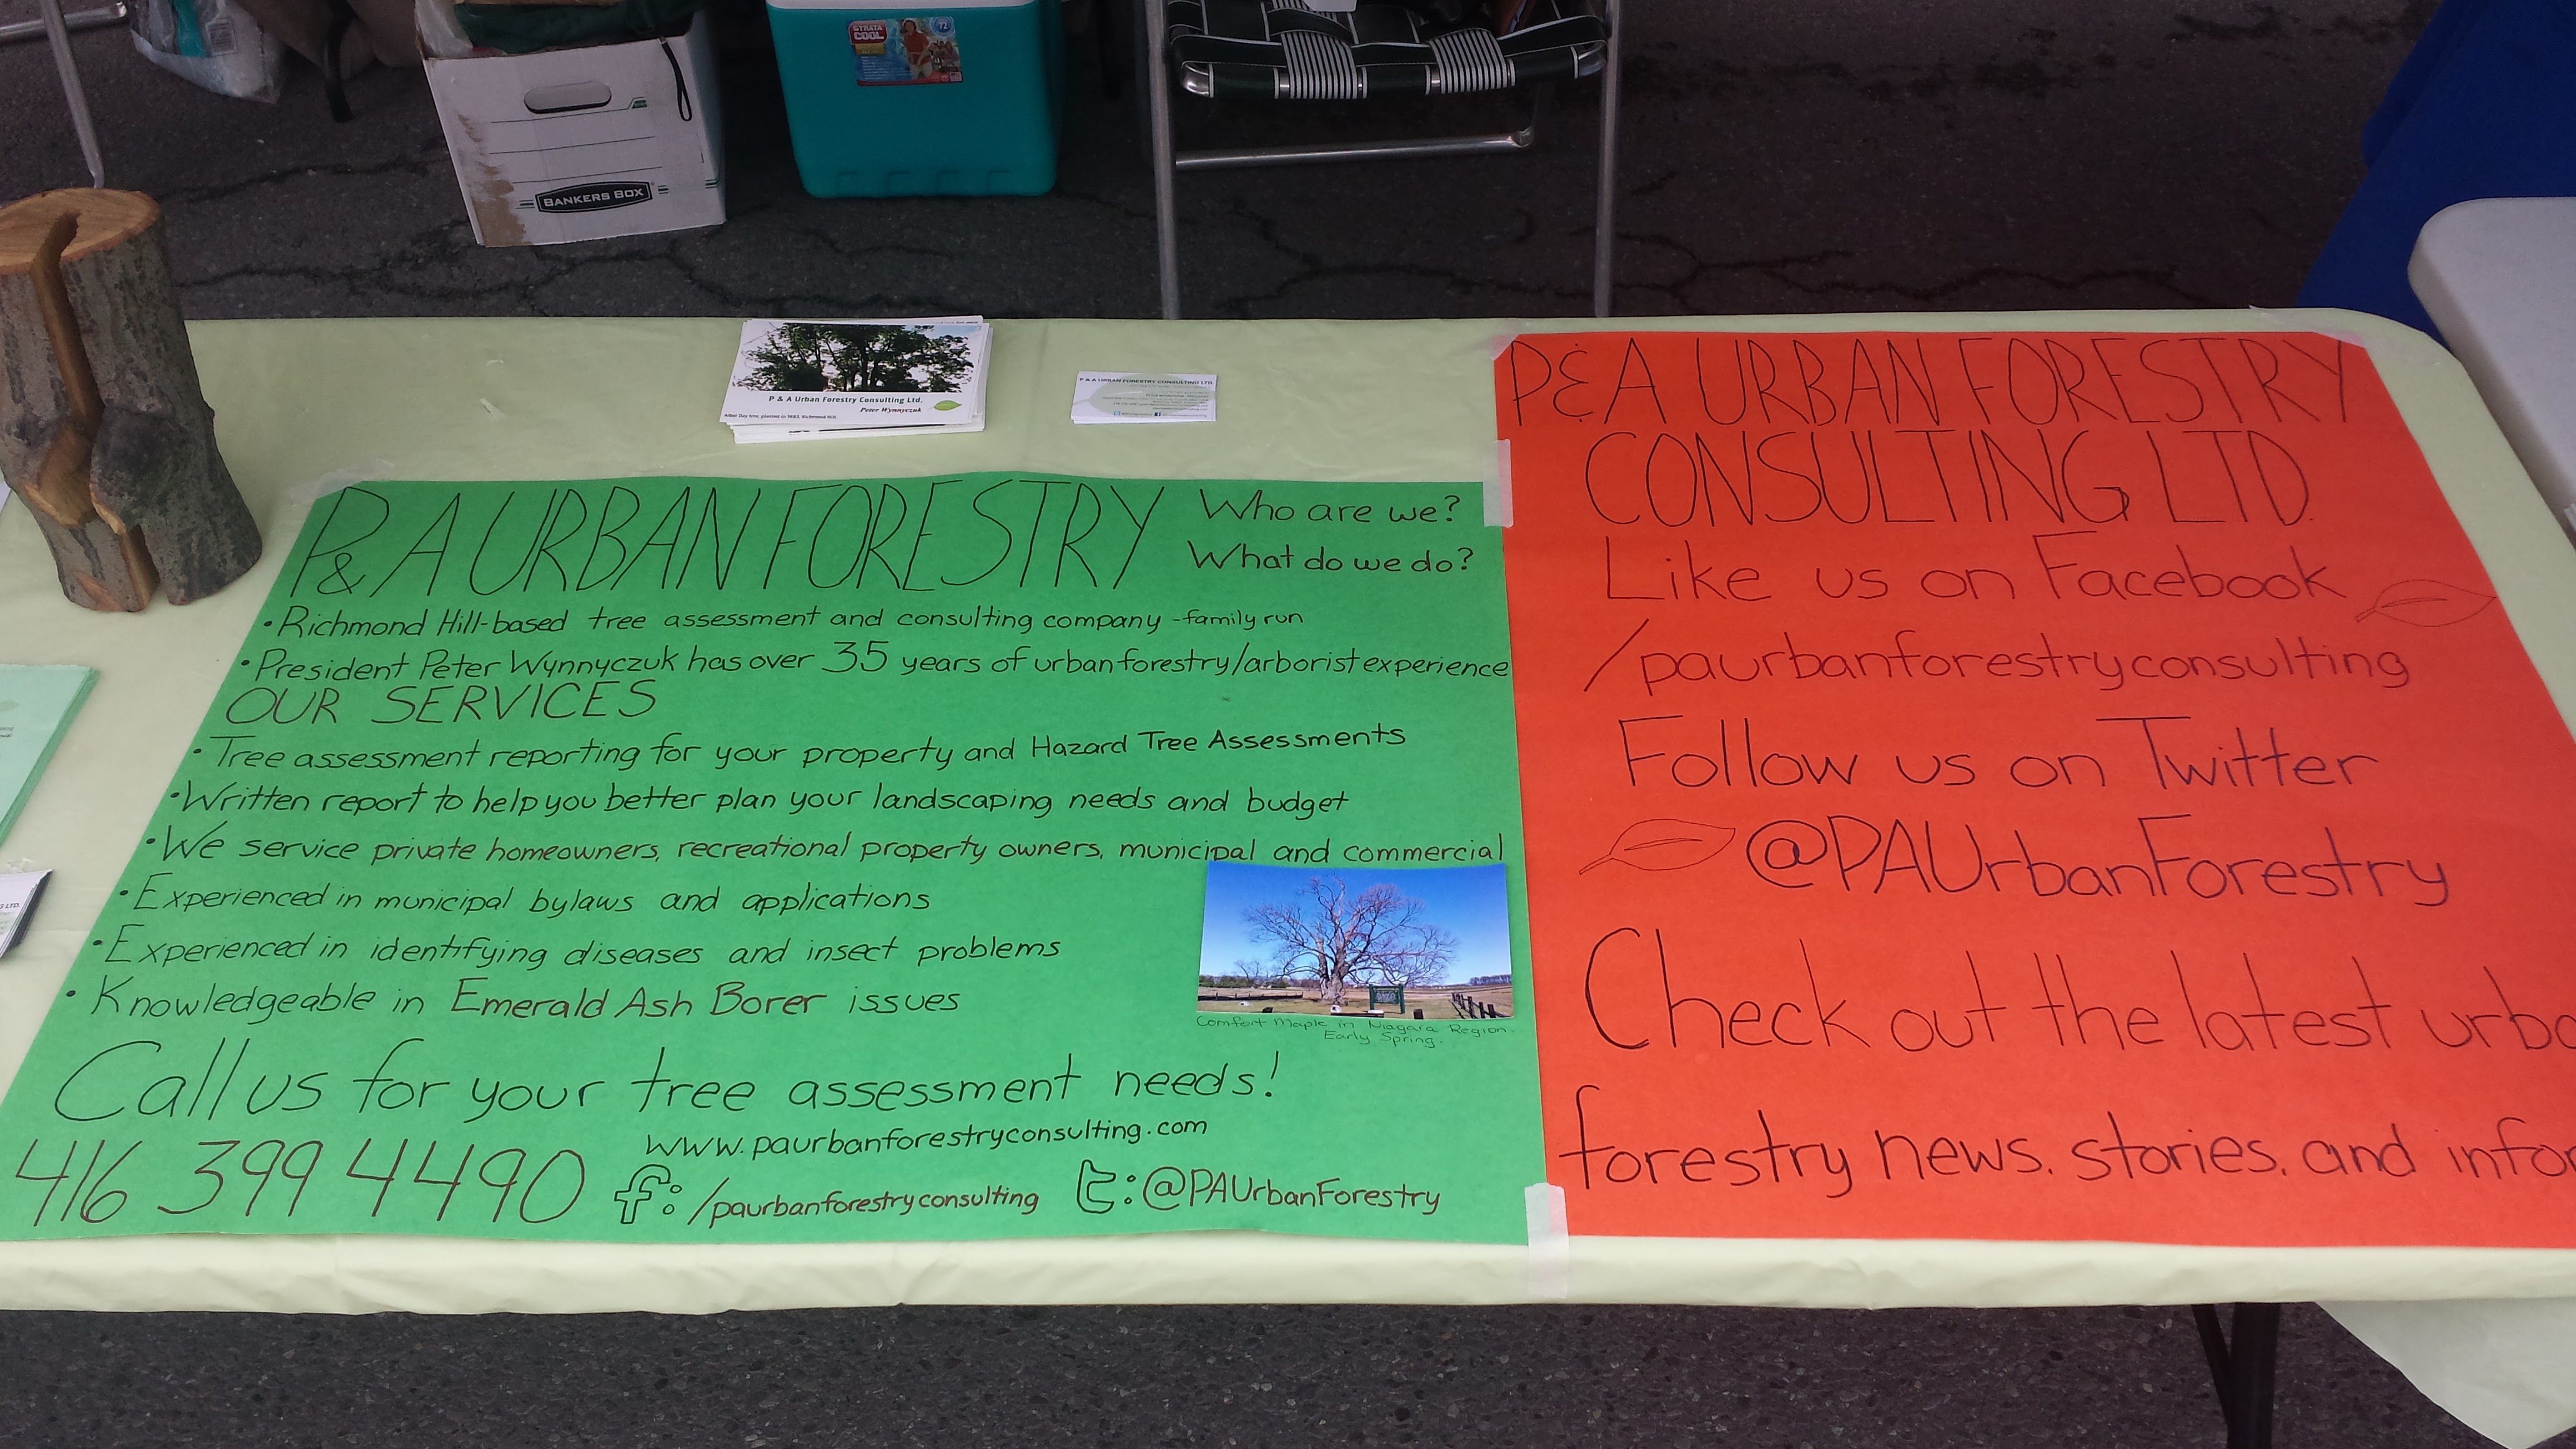 STRATA
COOL
72
BANKERS BOX
P & A Urban Forestry Consulting Ltd.
Peter Wynnyczuk
Arbor Day tree, planted in 1883, Richmond Hill.
P & A URBAN FORESTRY CONSULTING LTD.
P & A URBAN FORESTRY
Who are we?
What do we do?
• Richmond Hill-based tree assessment and consulting company - family run
• President Peter Wynnyczuk has over 35 years of urban forestry/arborist experience
OUR SERVICES
• Tree assessment reporting for your property and Hazard Tree Assessments
• Written report to help you better plan your landscaping needs and budget
• We service private homeowners, recreational property owners, municipal and commercial
• Experienced in municipal bylaws and applications
• Experienced in identifying diseases and insect problems
• Knowledgeable in Emerald Ash Borer issues
Comfort Maple in Niagara Region.
Early Spring.
Call us for your tree assessment needs!
www.paurbanforestryconsulting.com
416 399 4490
f: /paurbanforestryconsulting
t: @PAUrbanForestry
P & A URBAN FORESTRY
CONSULTING LTD.
Like us on Facebook
/paurbanforestryconsulting
Follow us on Twitter
@PAUrbanForestry
Check out the latest urba
forestry news, stories, and infor
LTD.